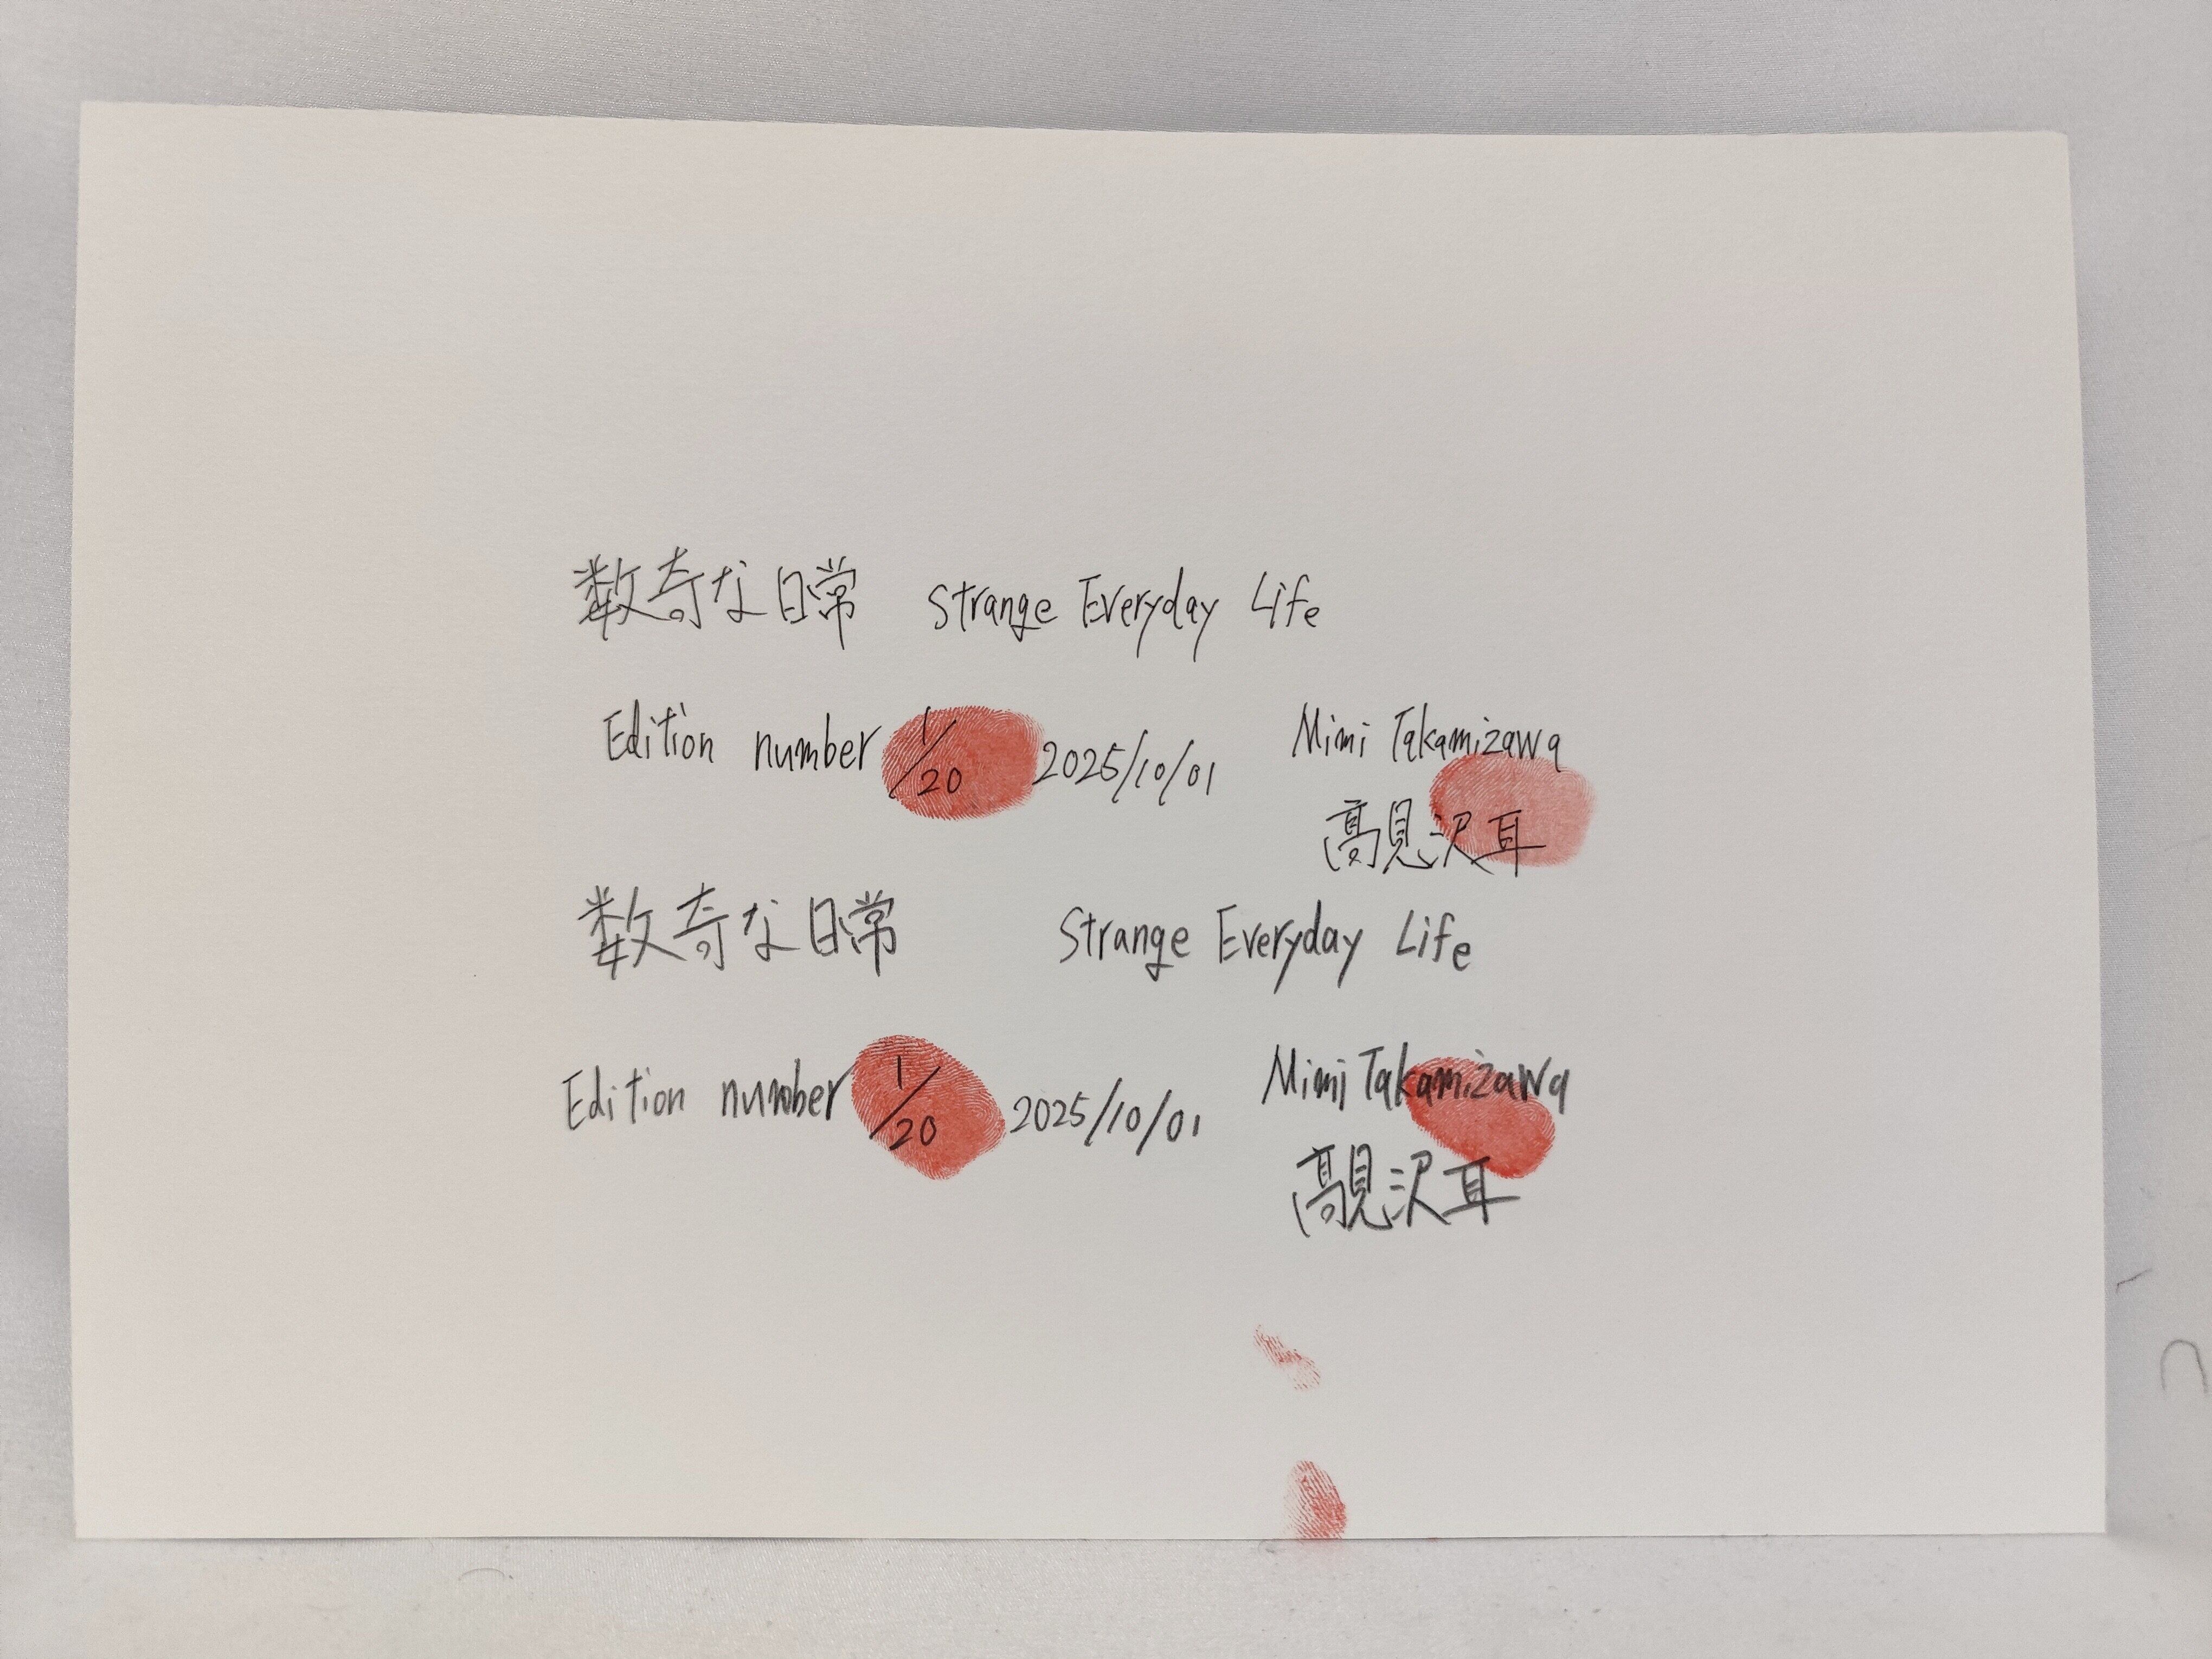 数奇な日常 Strange Everyday Life
Edition number 1/20 2025/10/01 Mimi Takamizawa
高見沢耳
数奇な日常 Strange Everyday Life
Edition number 1/20 2025/10/01 Mimi Takamizawa
高見沢耳